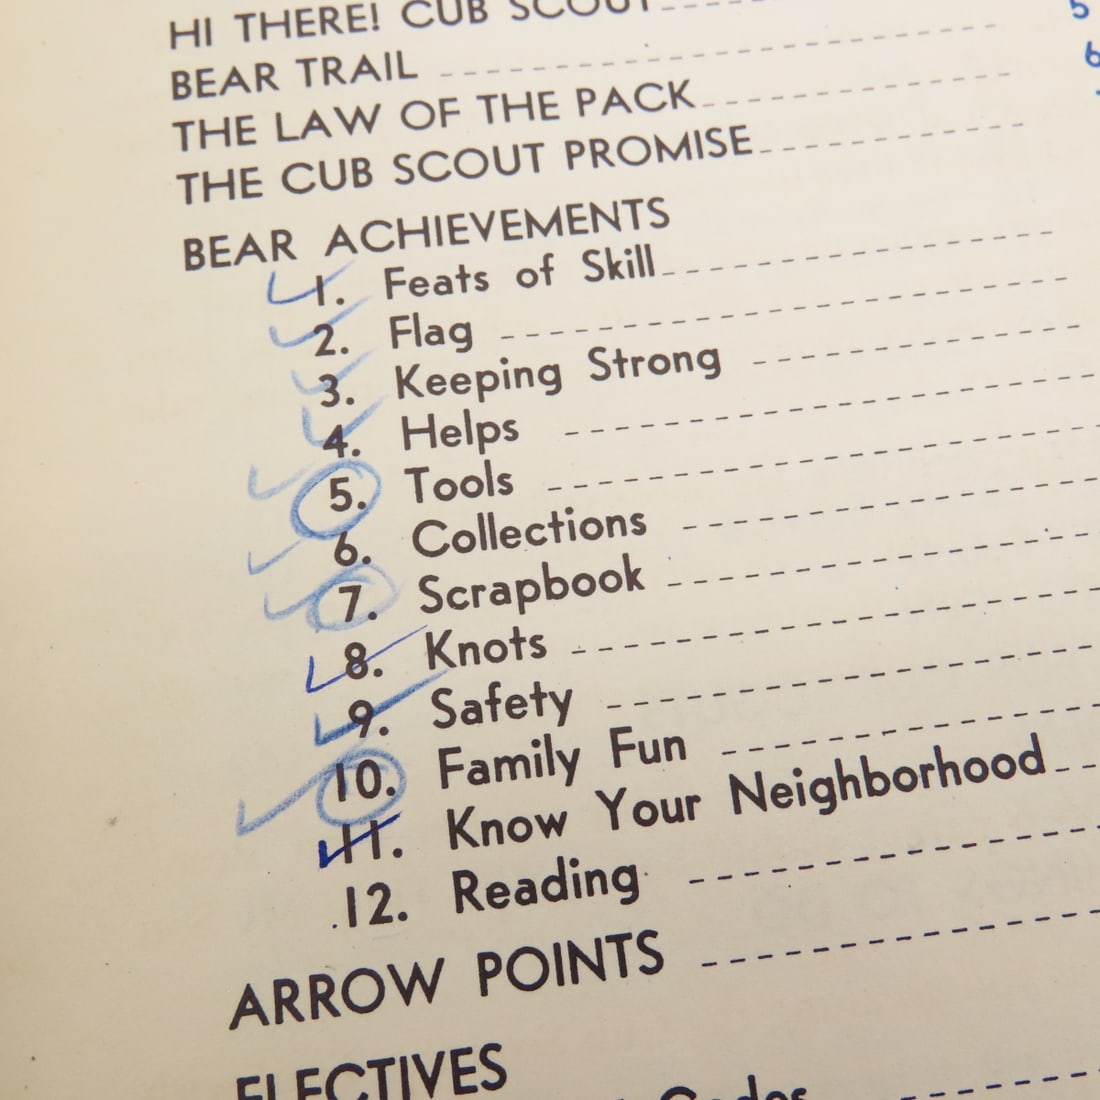 HI THERE! CUB SCOUT 5
BEAR TRAIL 6
THE LAW OF THE PACK
THE CUB SCOUT PROMISE
BEAR ACHIEVEMENTS
1. Feats of Skill
2. Flag
3. Keeping Strong
4. Helps
5. Tools
6. Collections
7. Scrapbook
8. Knots
9. Safety
10. Family Fun
11. Know Your Neighborhood
12. Reading
ARROW POINTS
ELECTIVES
Codes